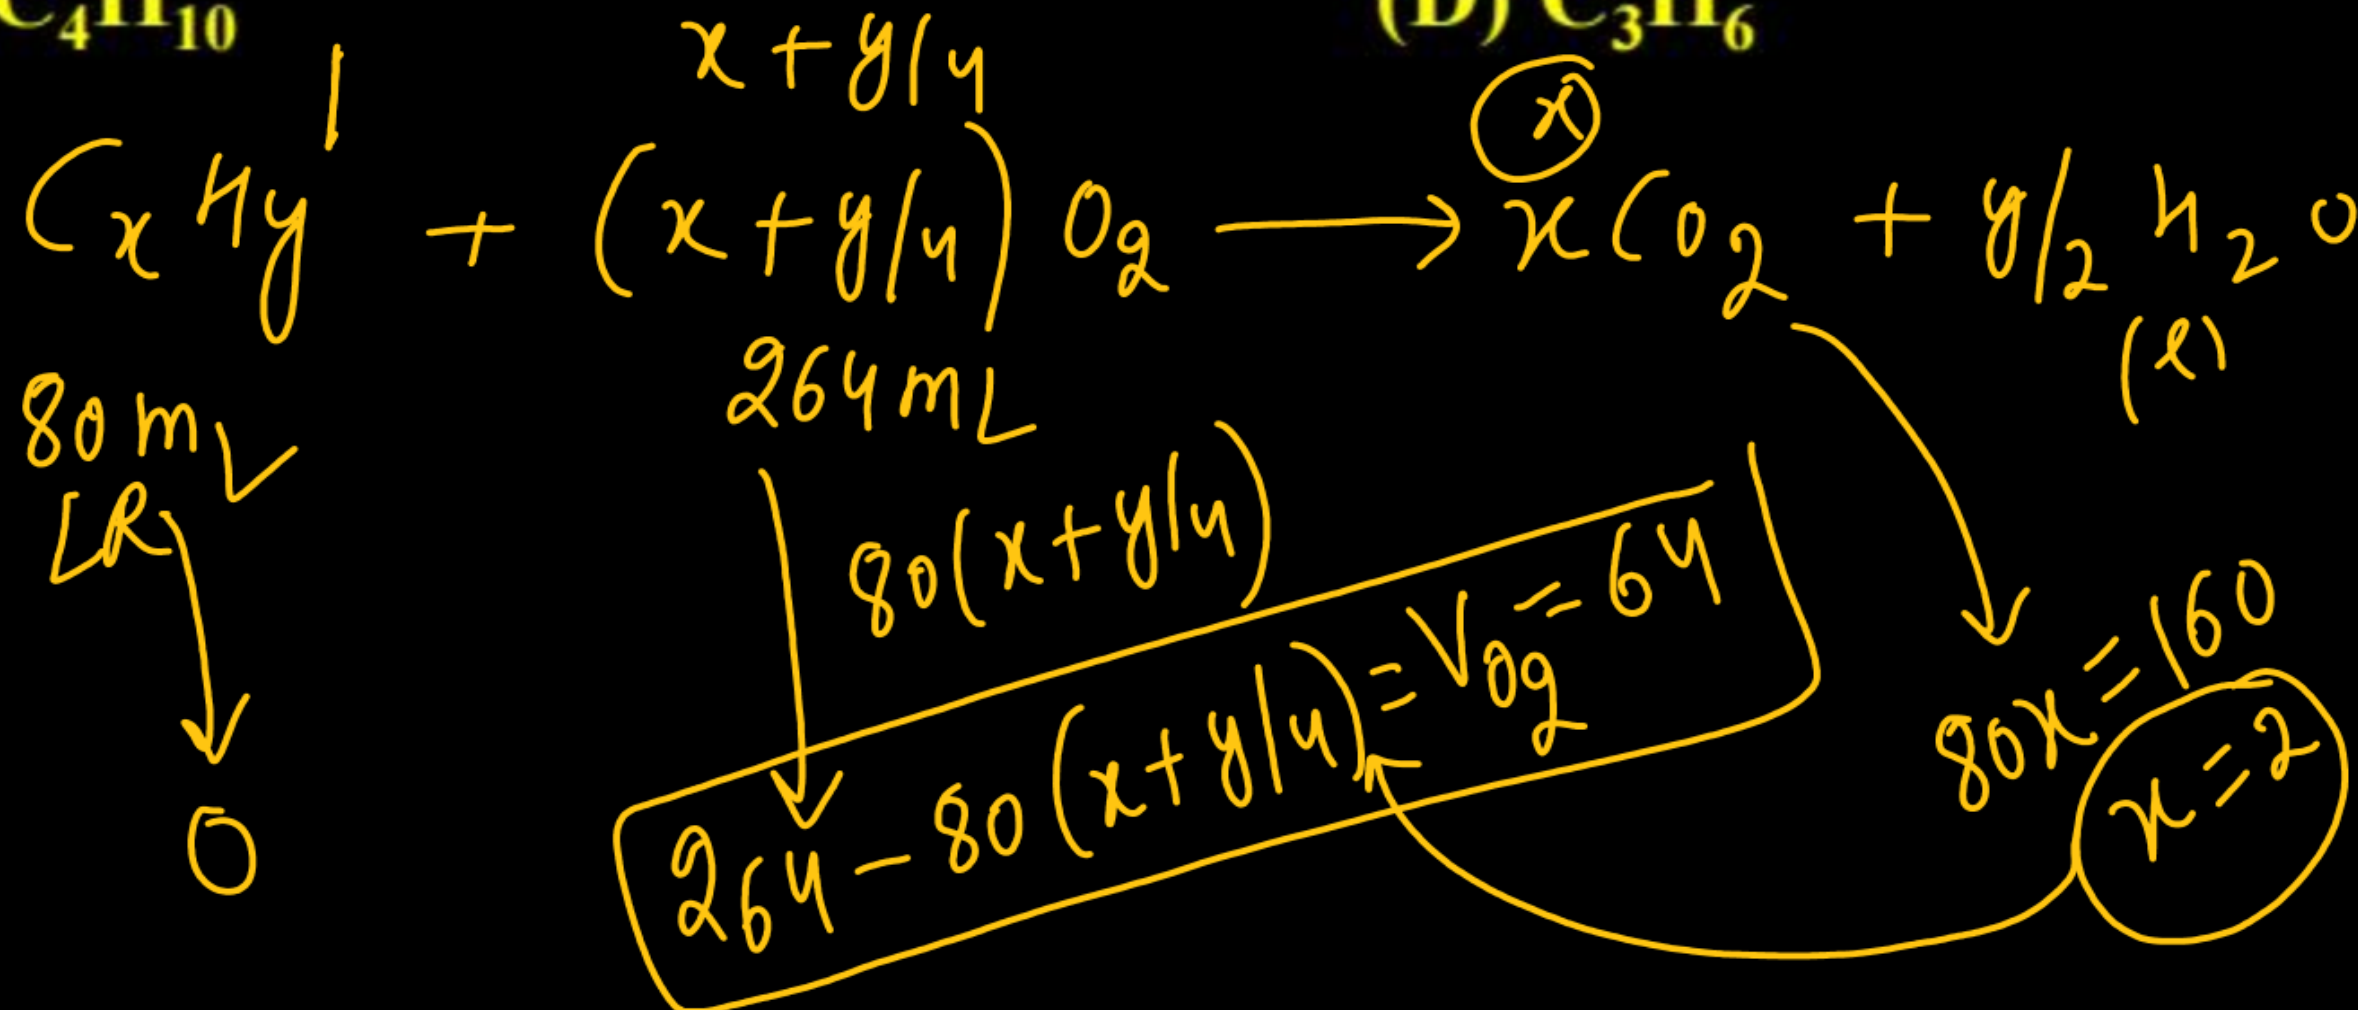 C₄H₁₀ (D) C₃H₆
1 x+y/4 x
CxHy + (x+y/4) O₂ → xCO₂ + y/2 H₂O
(l)
80 mL 264 mL
LR 80(x+y/4)
264 - 80(x+y/4) = V O₂ = 64
80x = 160
x = 2
0